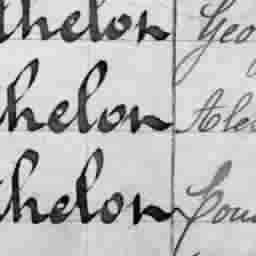 thelon Geo
helon Alex
helon Lou